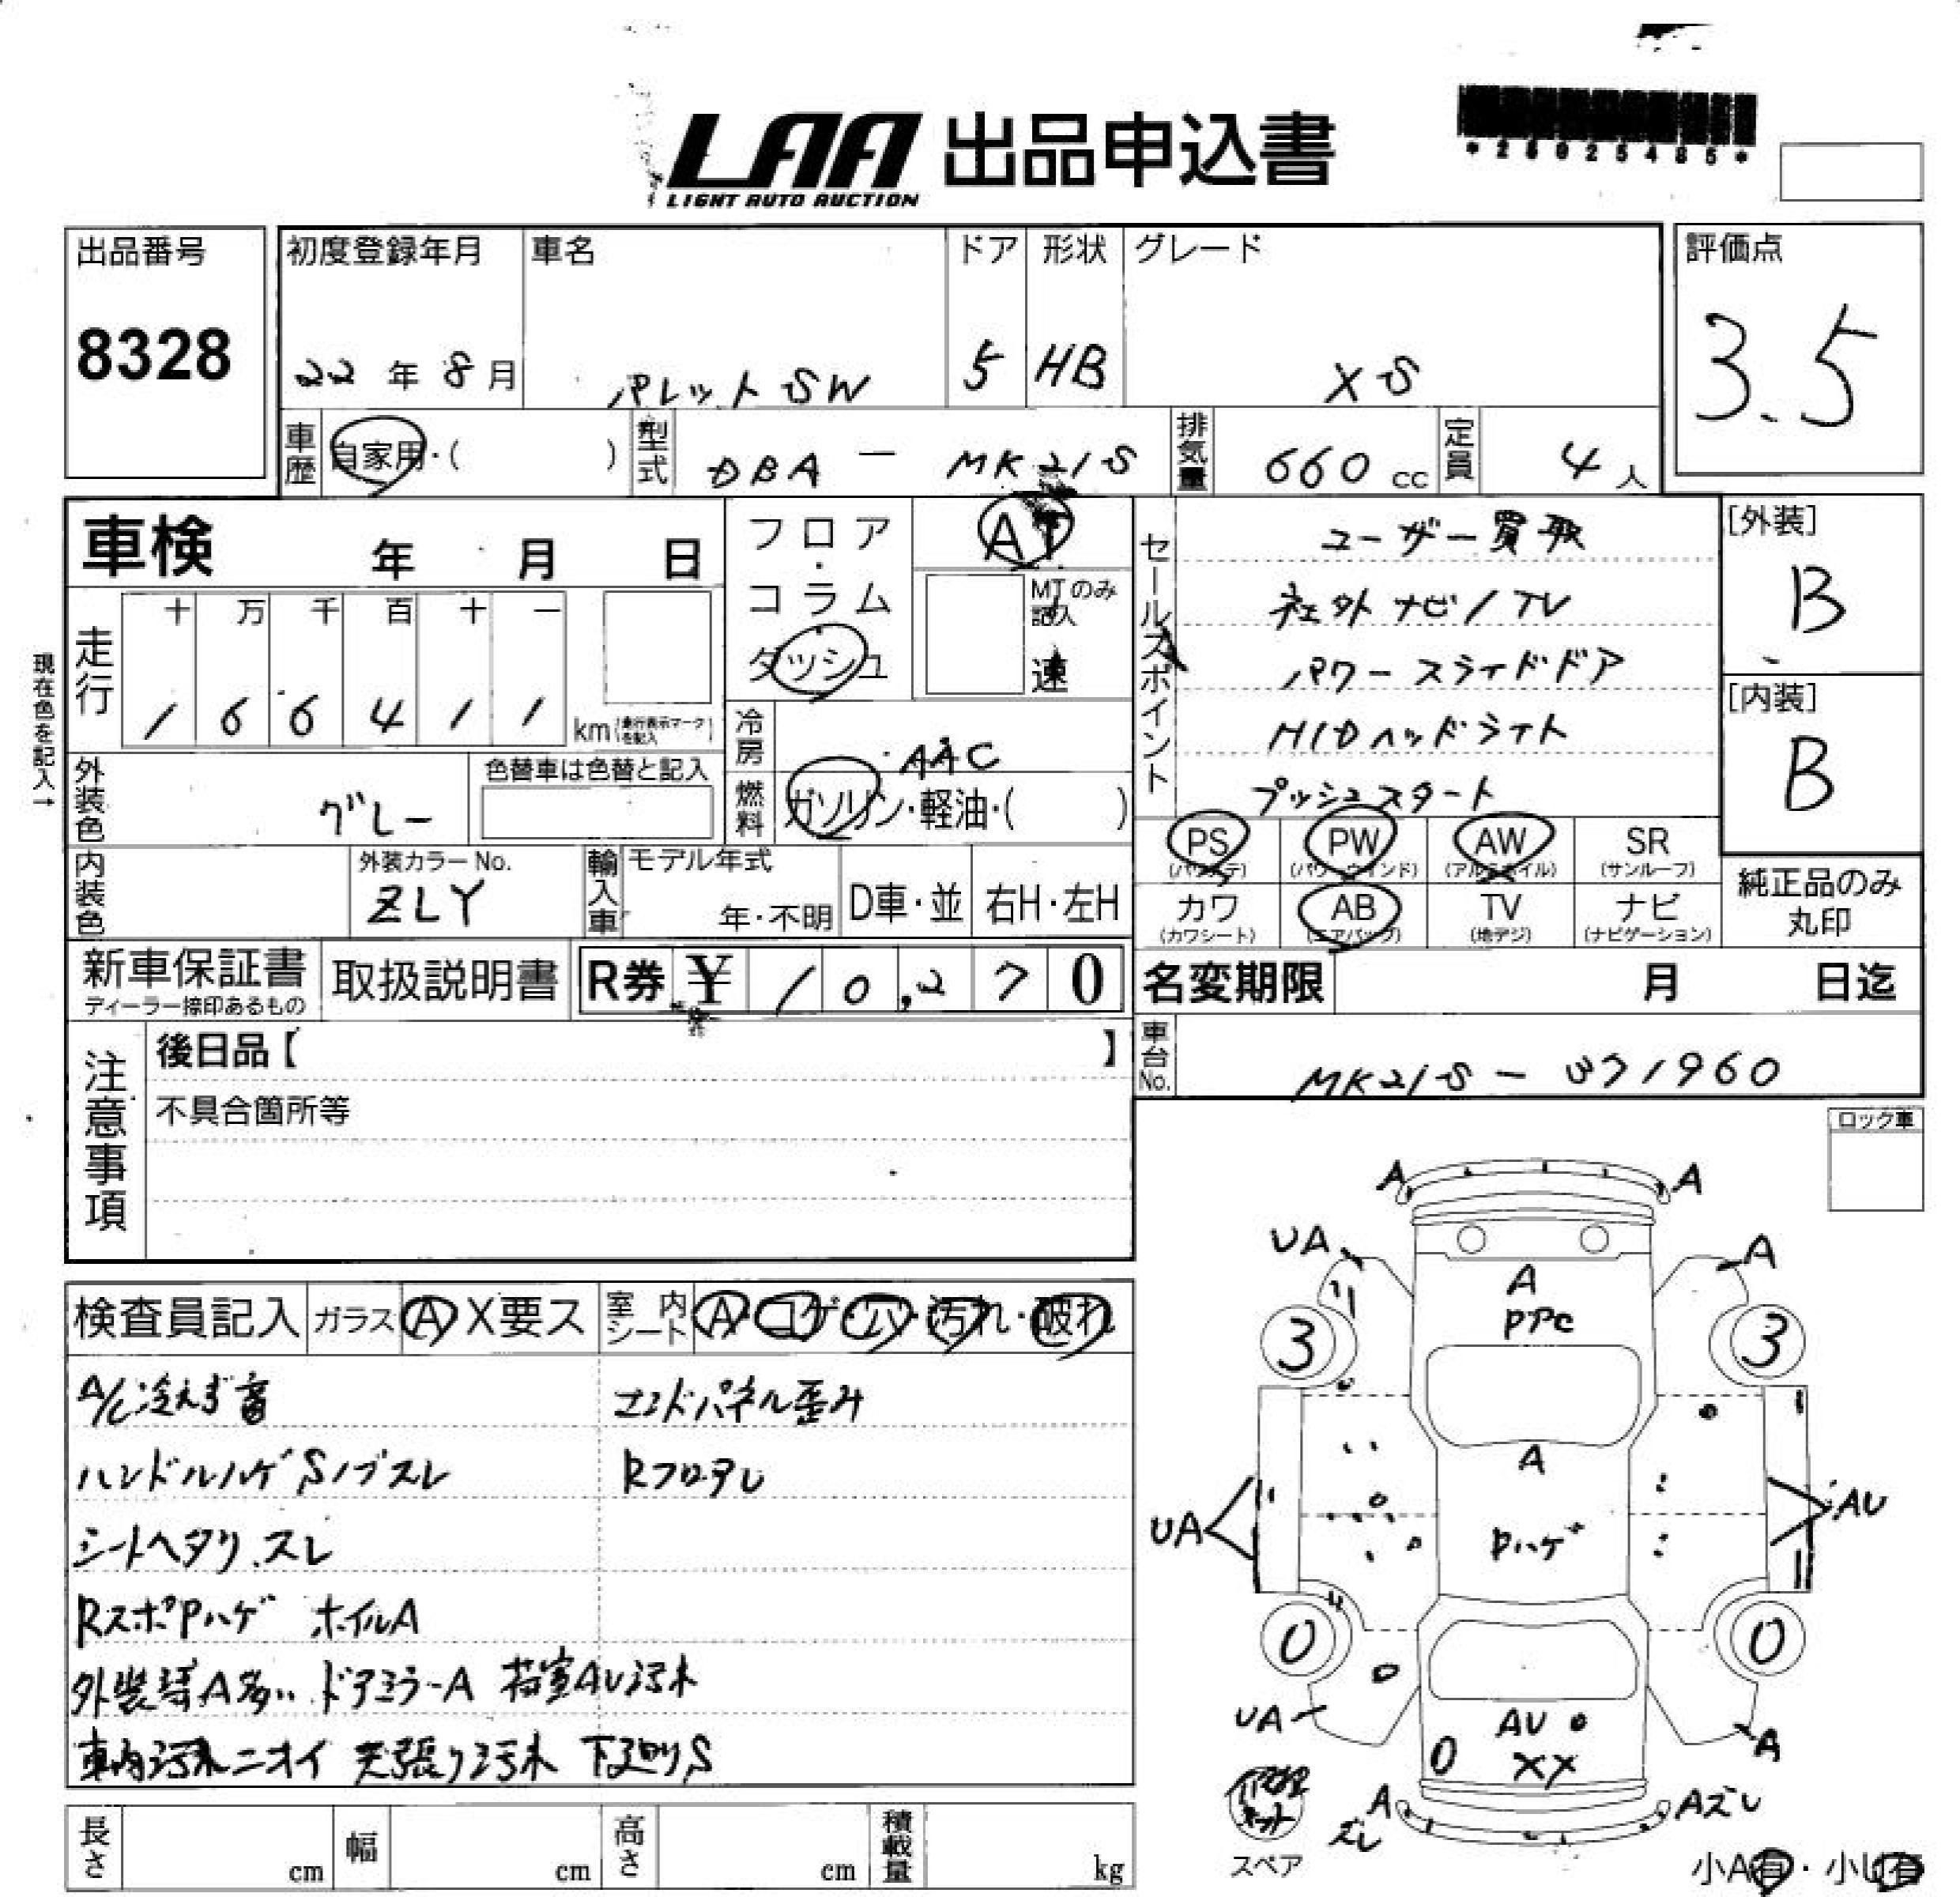 LAA 出品申込書
LIGHT AUTO AUCTION
*26025485*
出品番号
8328
初度登録年月
22年8月
車名
パレットSW
ドア
5
形状
HB
グレード
XS
評価点
3.5
車歴 自家用・( )
型式 DBA - MK21S
排気量 660cc
定員 4人
車検 年 月 日
フロア・コラム
ダッシュ
AT
MTのみ記入
速
現在色を記入→
走行 十 万 千 百 十 一
1 6 6 4 1 1 km (走行表示マークを記入)
冷房 AAC
燃料 ガソリン・軽油・( )
外装色 グレー
色替車は色替と記入
内装色
外装カラーNo.
ZLY
輸入車 モデル年式
年・不明
D車・並
右H・左H
セールスポイント
ユーザー買取
社外ナビ/TV
パワースライドドア
HIDヘッドライト
プッシュスタート
[外装]
B
[内装]
B
PS (パワステ) PW (パワーウインド) AW (アルミホイル) SR (サンルーフ)
カワ (カワシート) AB (エアバック) TV (地デジ) ナビ (ナビゲーション)
純正品のみ
丸印
新車保証書
ディーラー捺印あるもの
取扱説明書
R券 ¥ 10,270
名変期限 月 日迄
車台No. MK21S - 371960
注意事項
後日品【 】
不具合箇所等
ロック車
検査員記入 ガラス A X要ス 室内シート A・コゲ・穴・汚れ・破れ
A/C冷えず音 エンドパネル歪み
ハンドルハゲ Sノブスレ Rフロアズレ
シートヘタリ、スレ
RスポPハゲ ホイルA
外装等A多い ドアミラーA 荷室AU汚れ
車内汚れニオイ 天張り汚れ 下廻りS
A A
UA A
A
PPC
3 3
A
UA AU
Pハゲ
0 0
UA AU A
0 XX
修理キット
A ズレ Aズレ
スペア
小A有・小U有
長さ cm 幅 cm 高さ cm 積載量 kg